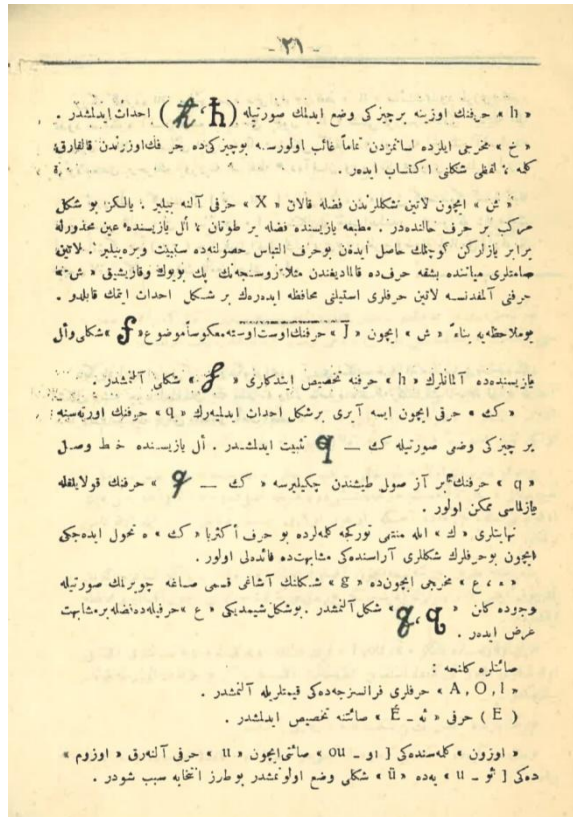 - ٣١ -
« h » حرفنك اوزينه برچيزكى وضع ايدلمك صورتيله (ħ ‘ ħ) احداث ايدلمشدر .
« خ » مخرجى ايلرده لسانمزدن تماماً غائب اولورسه بوچيزكى‌ده حرفك اوزرندن قالقارق
كله ، لفظى شكلنى اكتساب ايدر .
« ش » ايچون لاتين شكللرندن فضله قالان « X » حرفى آلنه بيلير ؛ يالكز بو شكل
مركب بر حرف حالنده‌در . مطبعه يازيسنده فضله ير طوتان ، أل يازيسنده عين محذورله
برابر يازلركن كوچلك حاصل ايدن بوحرف التباس حصولنه‌ده سببيت ويره‌بيلير . لاتين
صامتلرى مياننده بشقه حرف‌ده قالماديغندن مثلا روسجه‌نك پك بويوك وقاريشيق « ش »
حرفنى آلمقدنسه لاتين حرفلرى استيلنى محافظه ايده‌رك بر شكل احداث ايتمك قابلدر .
بوملاحظه‌يه بناءً « ش » ايچون « J » حرفنك اوست اوسته معكوساً موضوع « ʄ » شكلى وأل
يازيسنده‌ده آلمانلرك « h » حرفنه تخصيص ايتدكلرى « ʄ » شكلى آلنمشدر .
« ك » حرفى ايچون ايسه آيرى برشكل احداث ايدلميه‌رك « q » حرفنك اورته‌سنه
بر چيزكى وضعى صورتيله ك — q تثبيت ايدلمشدر . أل يازيسنده خط وصل
« q » حرفنك بر آز صول طيشندن چكيليرسه « ك — q » حرفنك قولايلقله
يازلماسى ممكن اولور .
نهايتلرى « ك » ايله منتهى توركجه كله‌لرده بو حرف أكثريا « ك » ه تحول ايده‌جكى
ايچون بوحرفلرك شكللرى آراسنده‌كى مشابهت‌ده فائده‌لى اولور .
« ء ، ع » مخرجى ايچون‌ده « g » شكلنك آشاغى قسمى صاغه چويرلمك صورتيله
وجوده كلن « q ، q » شكل آلنمشدر . بوشكل شيمديكى « ع » حرفيله‌ده فضله بر مشابهت
عرض ايدر .
صائتلره كلنجه :
« A , O , I » حرفلرى فرانسزجه‌ده‌كى قيمتلريله آلنمشدر .
( E ) حرفى « ئه ـ É » صائتنه تخصيص ايدلمشدر .
« اوزون » كله‌سنده‌كى [ او ـ ou » صائتى ايچون « u » حرفى آلنه‌رق « اوزوم »
ده‌كى [ ئو ـ u » يه‌ده « ü » شكلى وضع اولونمشدر بو طرز انتخابه سبب شودر .